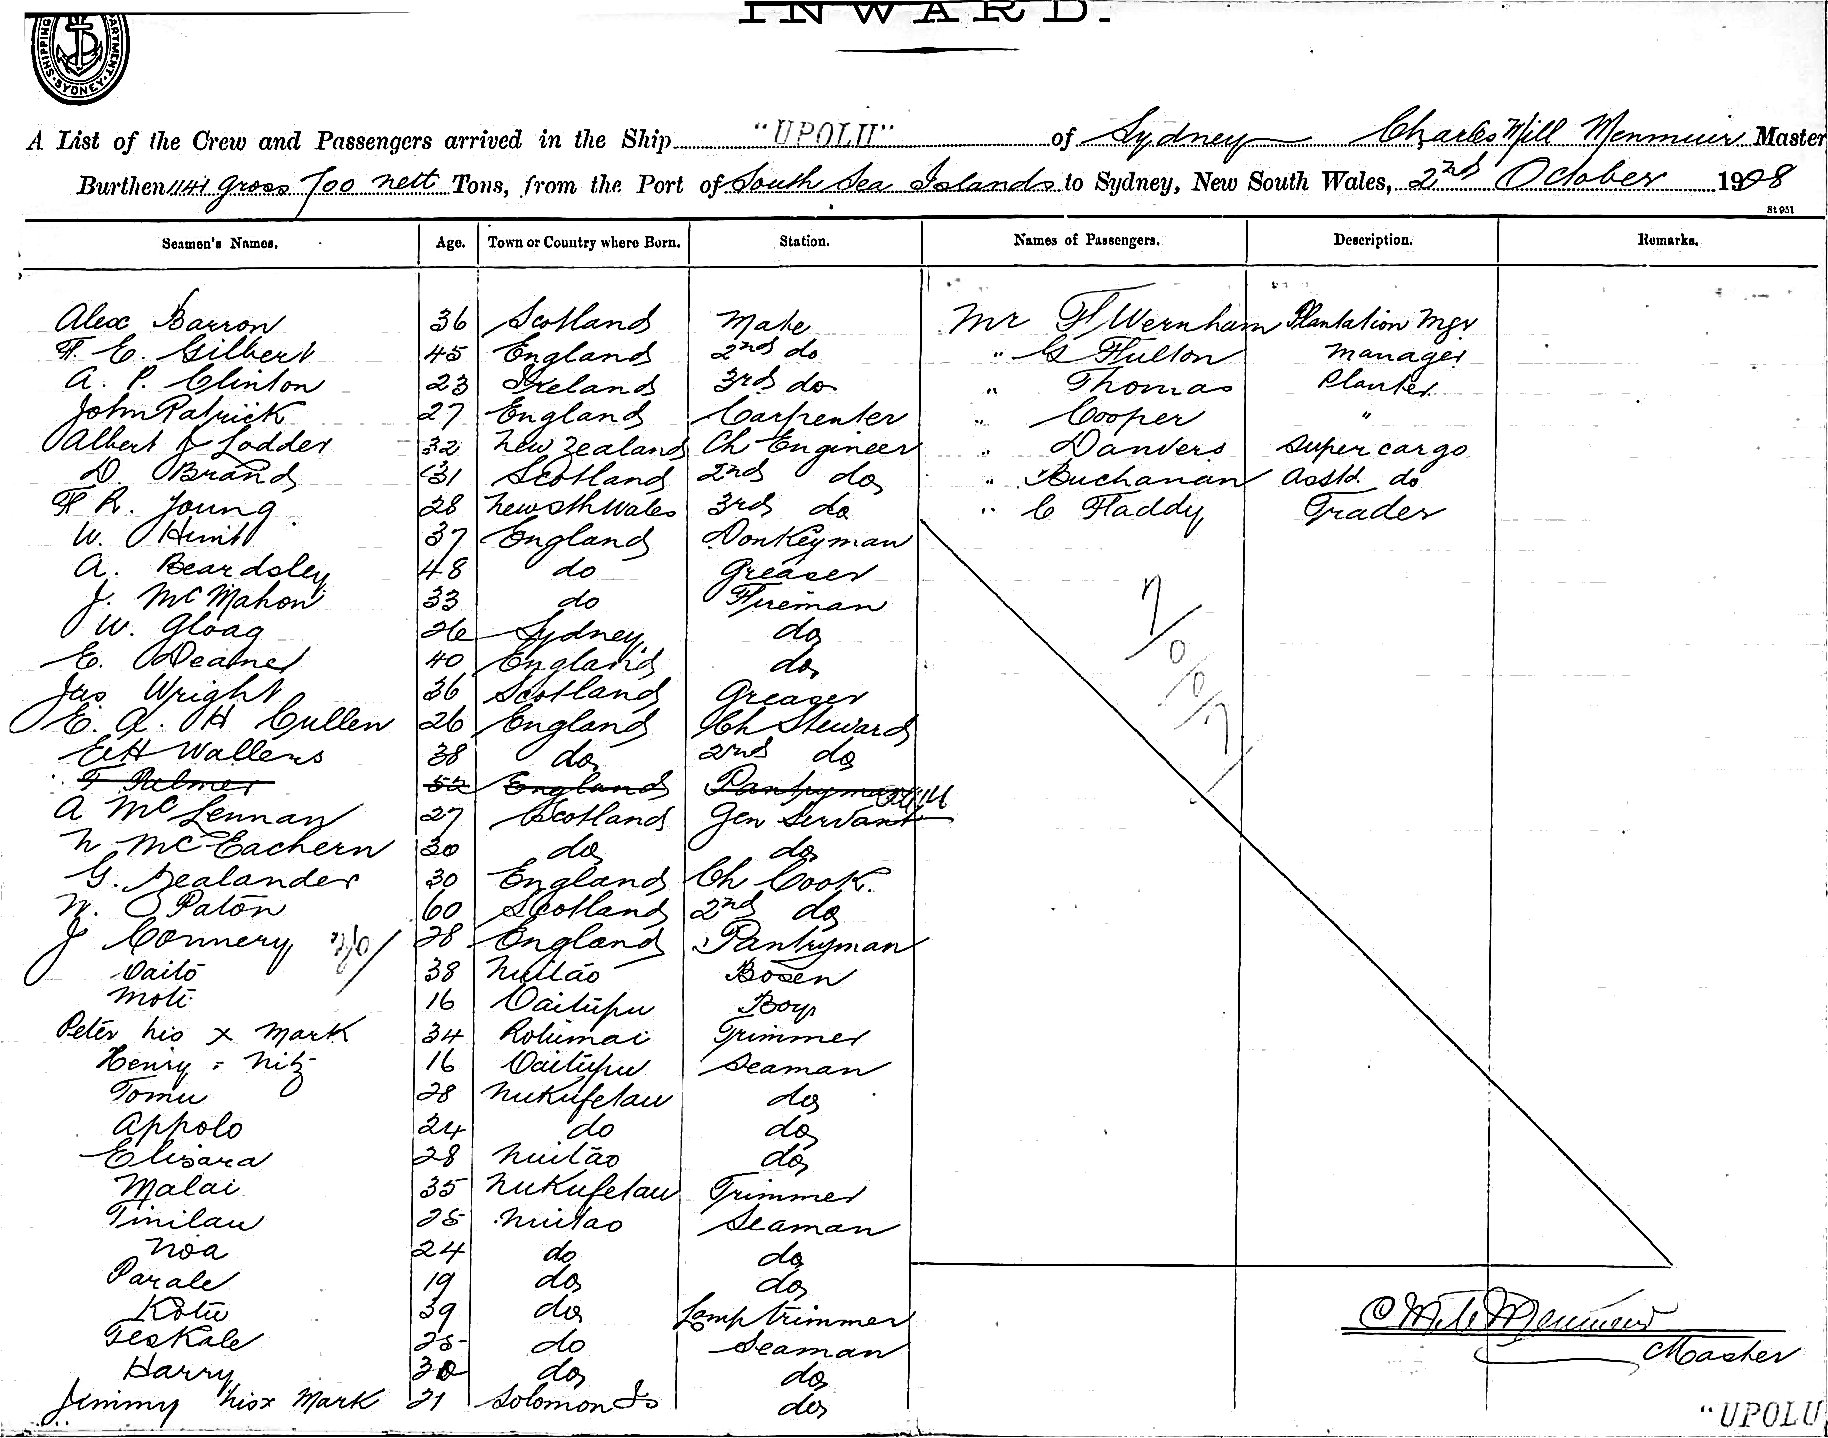 INWARD.
SHIPPING DEPARTMENT. SYDNEY.
A List of the Crew and Passengers arrived in the Ship "UPOLU" of Sydney Charles Mill Menmuir Master
Burthen 1141 gross 700 nett Tons, from the Port of South Sea Islands to Sydney, New South Wales, 2nd October 1908
St 951
Seamen's Names. Age. Town or Country where Born. Station. Names of Passengers. Description. Remarks.
Alex Barron 36 Scotland Mate Mr F Wernham Plantation Mgr
F. E. Gilbert 45 England 2nd do " G Fulton Manager
A. P. Clinton 23 Ireland 3rd do " Thomas Planter
John Patrick 27 England Carpenter " Cooper "
Albert J Lodder 32 New Zealand Ch Engineer " Danvers Supercargo
D. Brand 31 Scotland 2nd do " Buchanan Asstd. do
F R. Young 28 New Sth Wales 3rd do " C Faddy Trader
W. Hunt 37 England Donkeyman
A. Beardsley 48 do Greaser
J. McMahon 33 do Fireman
W. Gloag 26 Sydney do
E. Deamer 40 England do
Jas Wright 36 Scotland Greaser
E. A. H Cullen 26 England Ch Steward
E H Wallens 38 do 2nd do
F Palmer 52 England Pantryman
A McLennan 27 Scotland Gen Servant
N McEachern 30 do do
G. Sealander 30 England Ch Cook.
W. Paton 60 Scotland 2nd do
J Connery 28 England Pantryman
Vaito 38 Nuitao Bosen
Moti 16 Vaitupu Boy
Peter his x mark 34 Rotumai Trimmer
Henry = Nitz 16 Vaitupu Seaman
Tomu 28 Nukufetau do
Appolo 24 do do
Elisara 28 Nuitao do
Malai 35 Nukufetau Trimmer
Tinilau 25 Nuitao Seaman
Noa 24 do do
Parale 19 do do
Kotu 39 do Lamp trimmer
Teskale 25 do Seaman
Harry 30 do do
Jimmy his x Mark 21 Solomon Is do
C Mill Menmuir
Master
"UPOLU